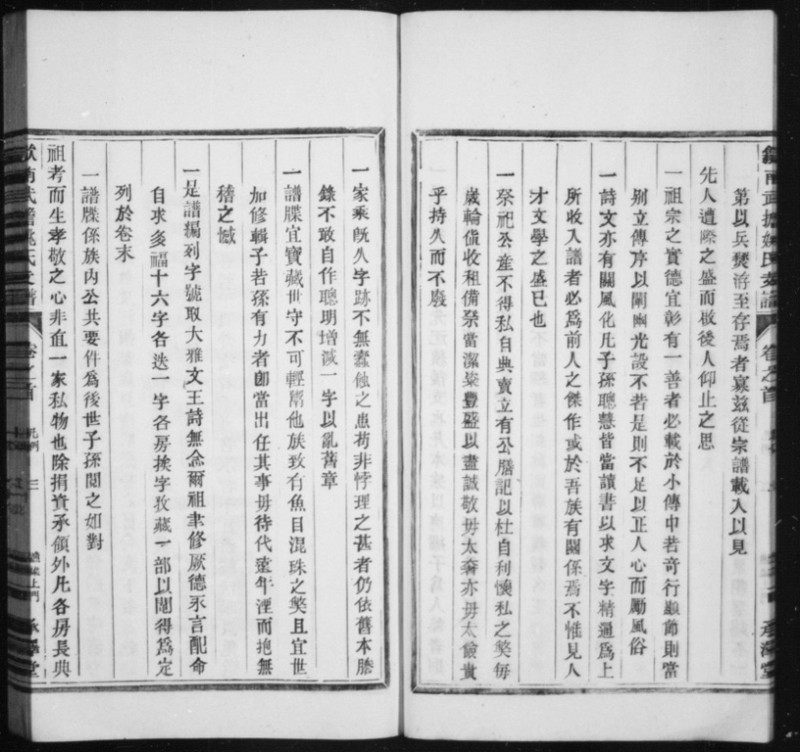 第以兵燹浴至存焉者寡茲從宗譜載入以見
先人遺際之盛而啟後人仰止之思
一祖宗之實德宜彰有一善者必載於小傳中若奇行巅節則當
別立傳序以闡幽光設不若是則不足以正人心而勵風俗
一詩文亦有關風化凡子孫聰慧皆當讀書以求文字精通為上
所收入譜者必爲前人之傑作或於吾族有關係焉不惟見人
才文學之盛已也
一祭祀公產不得私自典賣立有公膳記以杜自利懊私之獘每
歲輪值收租備祭當潔粢豐盛以盡誠敬毋太奢亦毋太儉貴
乎持久而不廢
一家乘旣久字跡不無蠹蝕之患苟非悖理之甚者仍依舊本謄
錄不敢自作聰明增減一字以亂舊章
一譜牒宜寶藏世守不可輕屑他族致有魚目混珠之獘且宜世
加修輯子若孫有力者卽當出任其事毋待代遠年湮而抱無
稽之憾
一是譜編列字號取大雅文王詩無念爾祖聿修厥德永言配命
自求多福十六字各迭一字各房挨字孜藏一部以鬮得爲定
列於卷末
一譜牒係族內公共要件爲後世子孫閱之如對
祖考而生孝敬之心非值一家私物也除捐貲承領外凡各房長典
卷之首
凡例
三
承澤堂